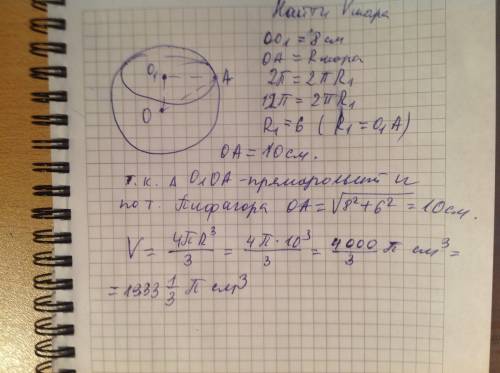 Найти Vшара
OO₁ = 8 см
OA = Rшара
2π = 2πR₁
12π = 2πR₁
R₁ = 6 (R₁ = O₁A)
O₁
A
O
OA = 10 см.
т.к. Δ O₁OA - прямоугольный и
по т. Пифагора OA = √(8² + 6²) = 10 см.
V = 4πR³/3 = 4π·10³/3 = 4000/3 π см³ =
= 1333 1/3 π см³